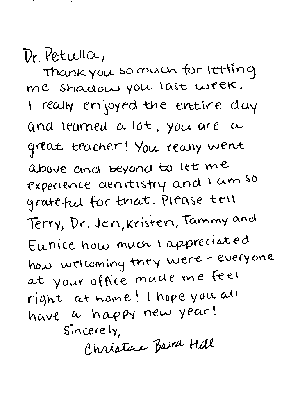 Dr. Petulla,
Thank you so much for letting
me shadow you last week.
I really enjoyed the entire day
and learned a lot, you are a
great teacher! You really went
above and beyond to let me
experience dentistry and I am so
grateful for that. Please tell
Terry, Dr. Jen, Kristen, Tammy and
Eunice how much I appreciated
how welcoming they were - everyone
at your office made me feel
right at home! I hope you all
have a happy new year!
Sincerely,
Baird Hill